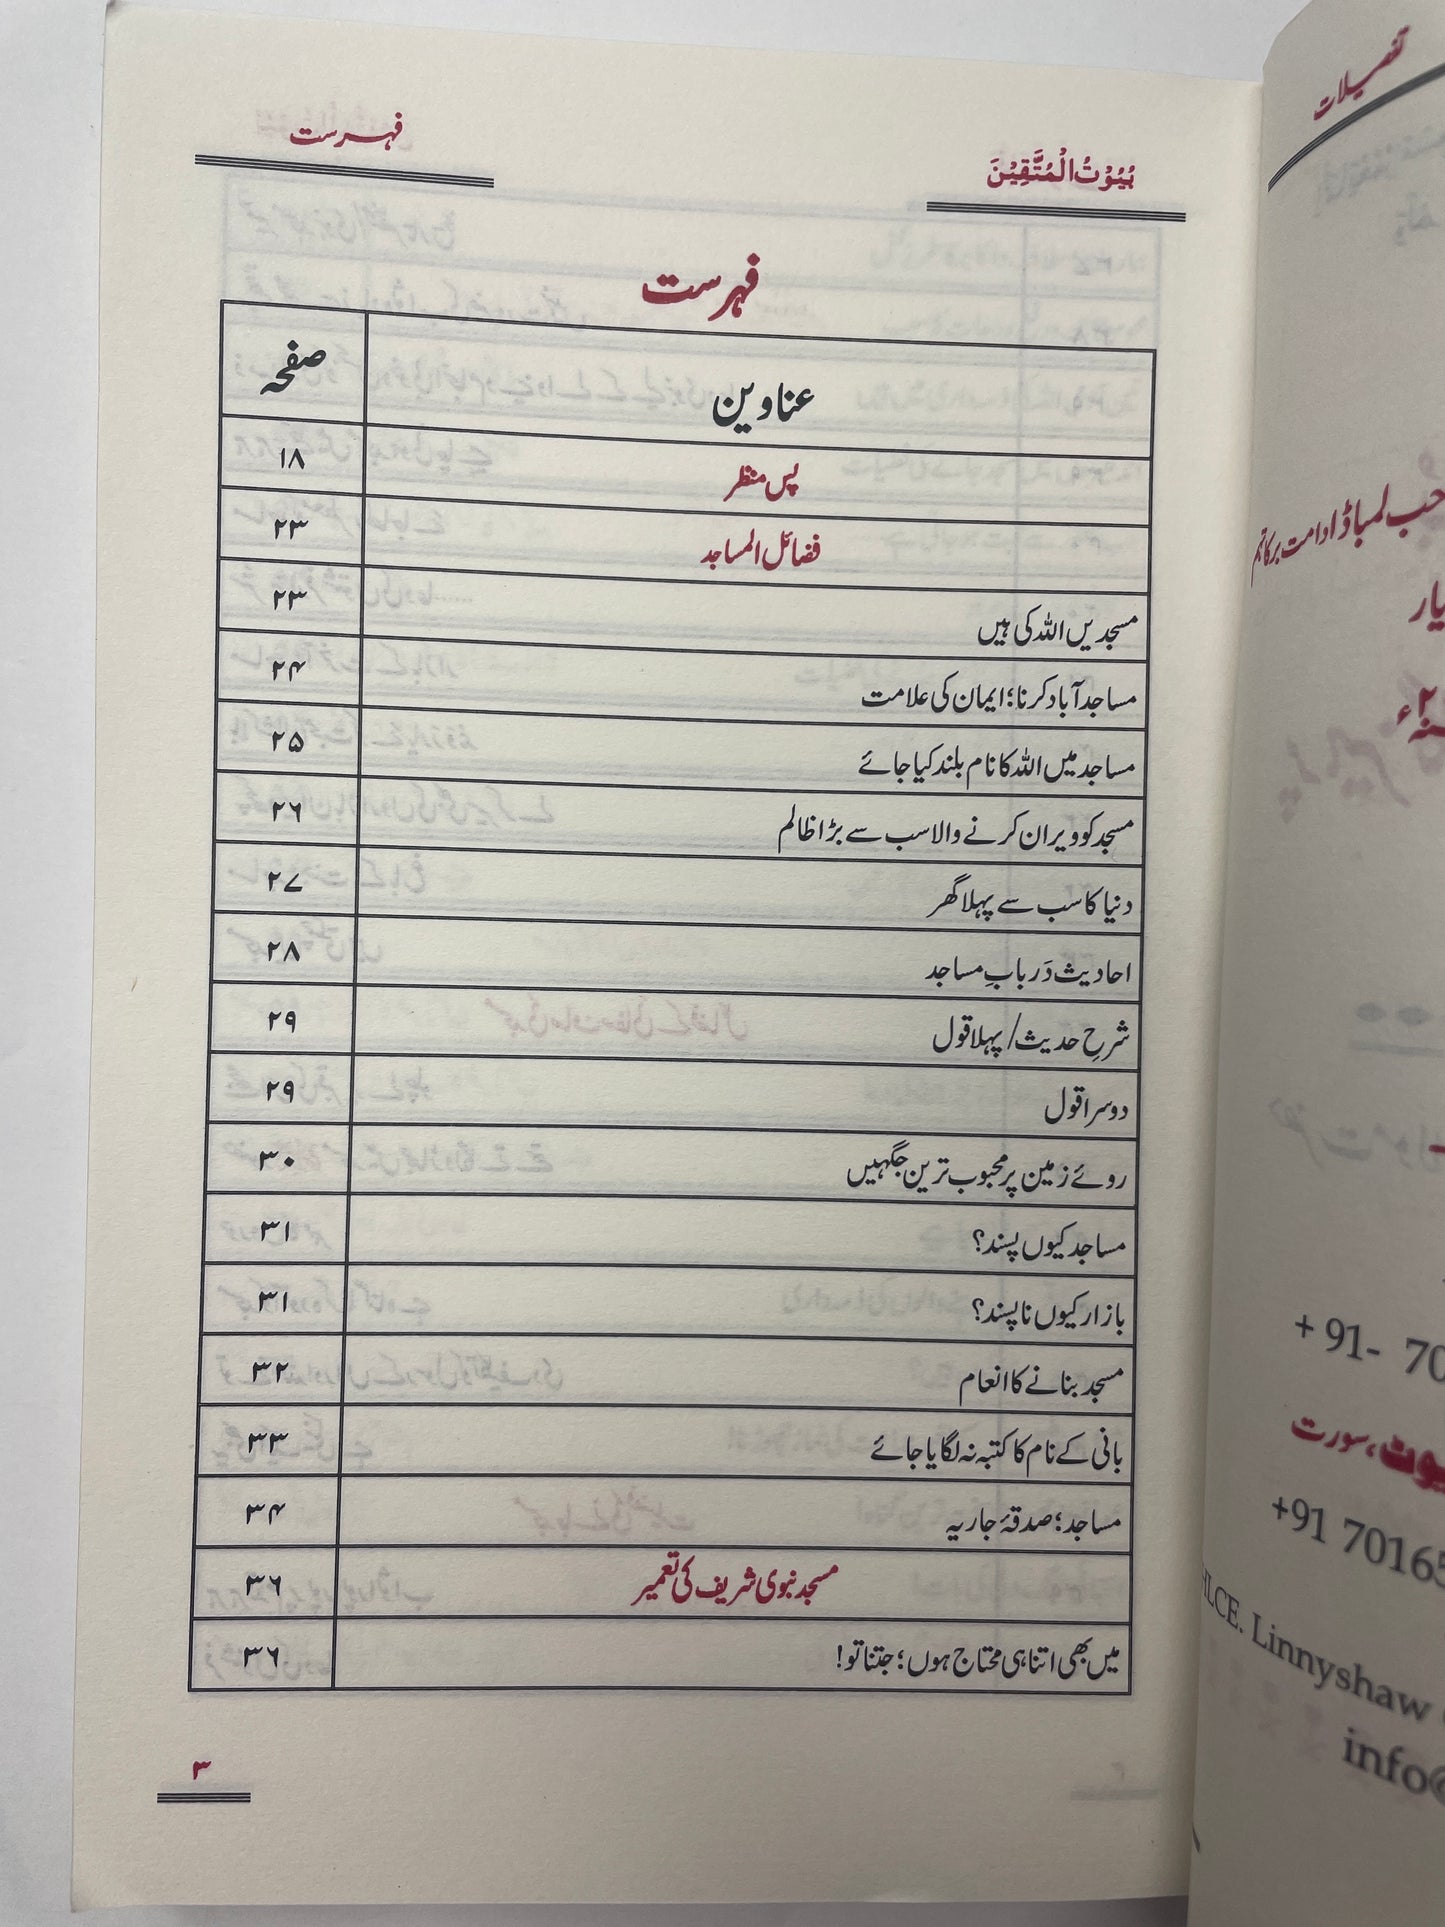 بُیُوْتُ الْمُتَّقِیْنَ
فہرست
فہرست
عناوین صفحہ
پس منظر ۱۸
فضائل المساجد ۲۳
مسجدیں اللہ کی ہیں ۲۳
مساجد آباد کرنا؛ ایمان کی علامت ۲۴
مساجد میں اللہ کا نام بلند کیا جائے ۲۵
مسجد کو ویران کرنے والا سب سے بڑا ظالم ۲۶
دنیا کا سب سے پہلا گھر ۲۷
احادیث دَر بابِ مساجد ۲۸
شرحِ حدیث/ پہلا قول ۲۹
دوسرا قول ۲۹
روئے زمین پر محبوب ترین جگہیں ۳۰
مساجد کیوں پسند؟ ۳۱
بازار کیوں ناپسند؟ ۳۱
مسجد بنانے کا انعام ۳۲
بانی کے نام کا کتبہ نہ لگایا جائے ۳۳
مساجد؛ صدقۂ جاریہ ۳۴
مسجد نبوی شریف کی تعمیر ۳۶
میں بھی اتنا ہی محتاج ہوں؛ جتنا تو! ۳۶
۳
تفصیلات
حب لمباڈا دامت برکاتہم
یار
+ 91- 70
یوٹ، سورت
+91 70165
LCE. Linnyshaw
info@